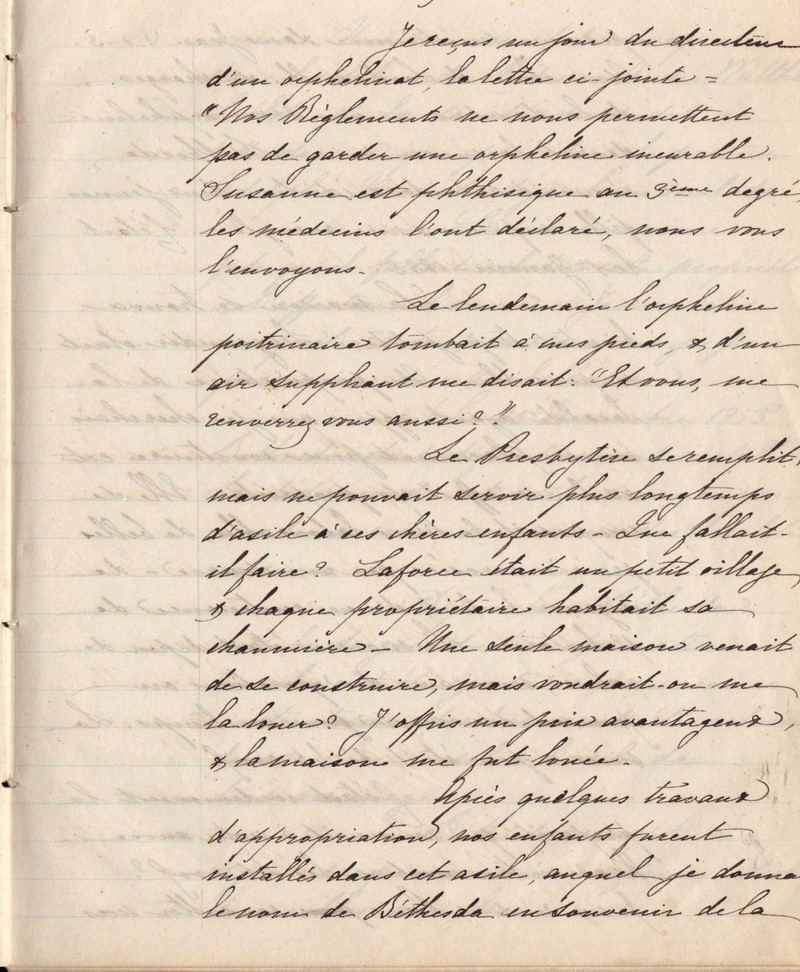 Je reçus un jour du directeur
d'un orphelinat, la lettre ci-jointe =
"Nos Règlements ne nous permettent
pas de garder une orpheline incurable.
Susanne est phthisique au 3ème degré,
les médecins l'ont déclaré, nous vous
l'envoyons -
Le lendemain l'orpheline
poitrinaire tombait à mes pieds, & d'un
air suppliant me disait: "Et vous, me
renverrez vous aussi?".
Le Presbytère se remplit,
mais ne pouvait servir plus longtemps
d'asile à ces chères enfants - Que fallait-
il faire? Laforce était un petit village,
& chaque propriétaire habitait sa
chaumière - Une seule maison venait
de se construire, mais voudrait-on me
la louer? J'offris un prix avantageux,
& la maison me fut louée -
Après quelques travaux
d'appropriation, nos enfants furent
installés dans cet asile, auquel je donna
le nom de Béthesda en souvenir de la